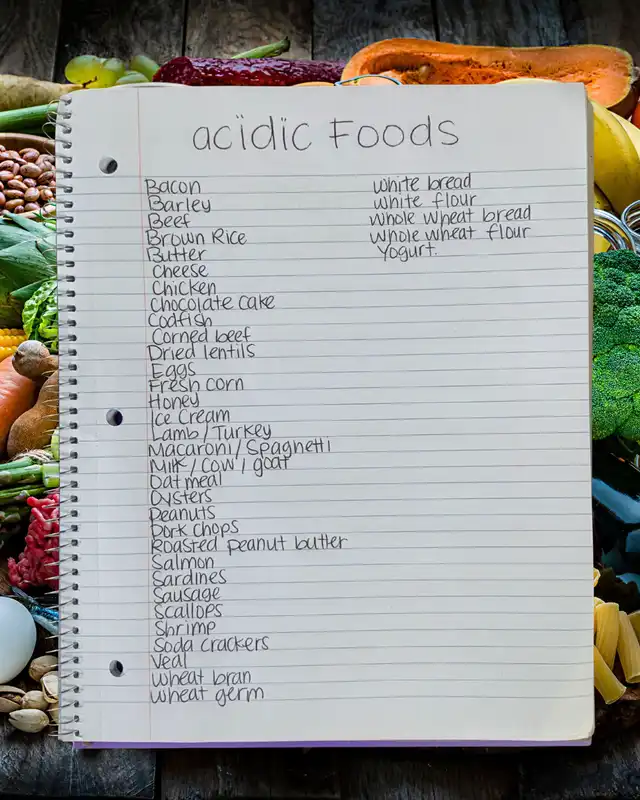 acïdïc Foods
Bacon
Barley
Beef
Brown Rice
Butter
Cheese
Chicken
Chocolate cake
Codfish
Corned beef
Dried lentils
Eggs
Fresh corn
Honey
Ice Cream
Lamb / Turkey
Macaroni / Spaghetti
Milk / Cow / goat
Oatmeal
Oysters
Peanuts
Pork chops
Roasted peanut butter
Salmon
Sardines
Sausage
Scallops
Shrimp
Soda crackers
Veal
wheat bran
wheat germ
white bread
white flour
whole wheat bread
whole wheat flour
Yogurt.